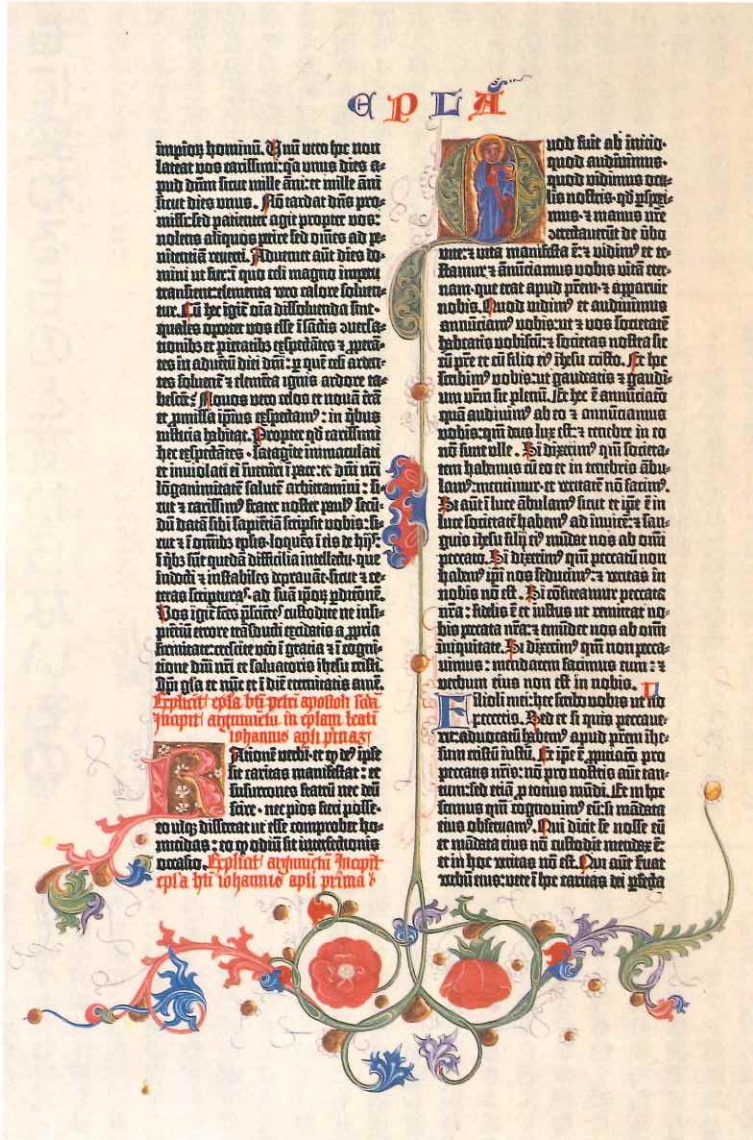 EPLA
impioꝝ hominū. Unū vero hoc non
lateat vos carissimi: qa unus dies a-
pud dūm sicut mille āni: et mille āni
sicut dies unus. Nō tardat dūs pro-
missū: sed patienter agit propter vos:
nolens aliquos perire sed omēs ad pe-
nitentiā reverti. Adveniet aūt dies do-
mini ut fur: ī quo celi magno impetu
transient: elementa vero calore solven-
tur. Cū hec igit̄ oīa dissolvenda sint
quales oportet vos esse ī sāctis ꝯversa-
nonibꝫ et pietatibꝫ exspectātes ⁊ ꝓperā-
tes in adventū diei dūi: ꝑ quē celi arden-
tes solvent̄ ⁊ elemēta ignis ardore ta-
bescēt? Novos vero celos et novā t̄rā
et ꝓmissa ipius exspectamꝰ: in qibus
iusticia habitat. Propter qd carissimi
hec exspectātes · satagite immaculati
et inviolati ei inveniri ī pace: et dūi nrī
lōganimitatē salutē arbitramini: si-
cut ⁊ carissimꝰ frater noster paulꝰ secū-
dū datā sibi sapiētiā scripsit vobis: si-
cut ⁊ ī omībꝫ eplis · loquēs ī eis de hijs:
ī qbꝫ sūt quedā difficilia intellectu · que
indocti ⁊ instabiles depravāt · sicut ⁊ ce-
teras scripturas · ad suā ipoꝝ ꝑditionē.
Vos igit̄ frēs p̄scientes custodite ne insi-
pientiū errore trāsducti excidatis a ꝓpria
firmitate: crescite vero ī gracia ⁊ ī cogni-
tione dūi nrī et salvatoris ihesu cristi.
Ipi gl̄a et nūc et ī diē eternitatis amē.
Explicit ep̄la bt̄i petri apostoli scd̄a
Incipit argumentū in ep̄lam beati
iohannis apl̄i primā
Rationē verbi · et ꝙ deꝰ ipse
sit caritas manifestat: et
susurrones fratrū nec deū
scire · nec pios fieri posse ·
eo usqꝫ disserat ut esse comprobet ho-
micidas: eo ꝙ odiū sit interfectionis
occasio. Explicit argumētū Incipit
ep̄la bt̄i iohannis apl̄i prima
Quod fuit ab inicio ·
quod audivimus ·
quod vidimus ocu-
lis nostris · qd ꝑspexi-
mus · ⁊ manus nrē
ꝯtrectaverūt de v̄bo
vite: ⁊ vita manifesta ē: ⁊ vidimꝰ et te-
stamur ⁊ ānūciamus vobis vitā eter-
nam · que erat apud pr̄em · ⁊ apparuit
nobis. Quod vidimꝰ et audivimus
annūciamꝰ vobis: ut ⁊ vos societatē
habeatis nobiscū: ⁊ societas nostra sit
cū pr̄e et cū filio eiꝰ ihesu cristo. Et hec
scribimꝰ vobis: ut gaudeatis ⁊ gaudi-
um vr̄m sit plenū. Et hec ē annūciatio
quā audivimꝰ ab eo ⁊ annūciamus
vobis: qm̄ deus lux est: ⁊ tenebre in eo
nō sunt ulle. Si dixerimꝰ qm̄ societa-
tem habemus cū eo et in tenebris ābu-
lamꝰ: mentimur · et veritatē nō facimꝰ.
Si aūt ī luce ābulamꝰ sicut et ip̄e ē in
luce societatē habemꝰ ad invicē: ⁊ san-
guis ihesu filij eiꝰ mūdat nos ab omī
peccato. Si dixerimꝰ qm̄ peccatū non
habemꝰ ip̄i nos seducimꝰ: ⁊ veritas in
nobis nō est. Si cōfiteamur peccata
nr̄a: fidelis ē et iustus ut remittat no-
bis peccata nr̄a: ⁊ emūdet nos ab omī
iniquitate. Si dixerimꝰ qm̄ non pecca-
vimus: mendacem facimus eum: ⁊
verbum eius non est in nobis. II
Filioli mei: hec scribo vobis ut nō
peccetis. Sed et si quis peccave-
rit: advocatū habemꝰ apud pr̄em ihe-
sum cristū iustū. Et ip̄e ē ꝓpitiatio pro
peccatis nr̄is: nō pro nostris aūt tan-
tum: sed etiā ꝓ totius mūdi. Et in hoc
scimus qm̄ cognovimꝰ eū: si mādata
eius observamꝰ. Qui dicit se nosse eū
et mādata eius nō custodit mendax ē:
et in hoc veritas nō est. Qui aūt servat
verbū eius: vere ī hoc caritas dei ꝑfecta